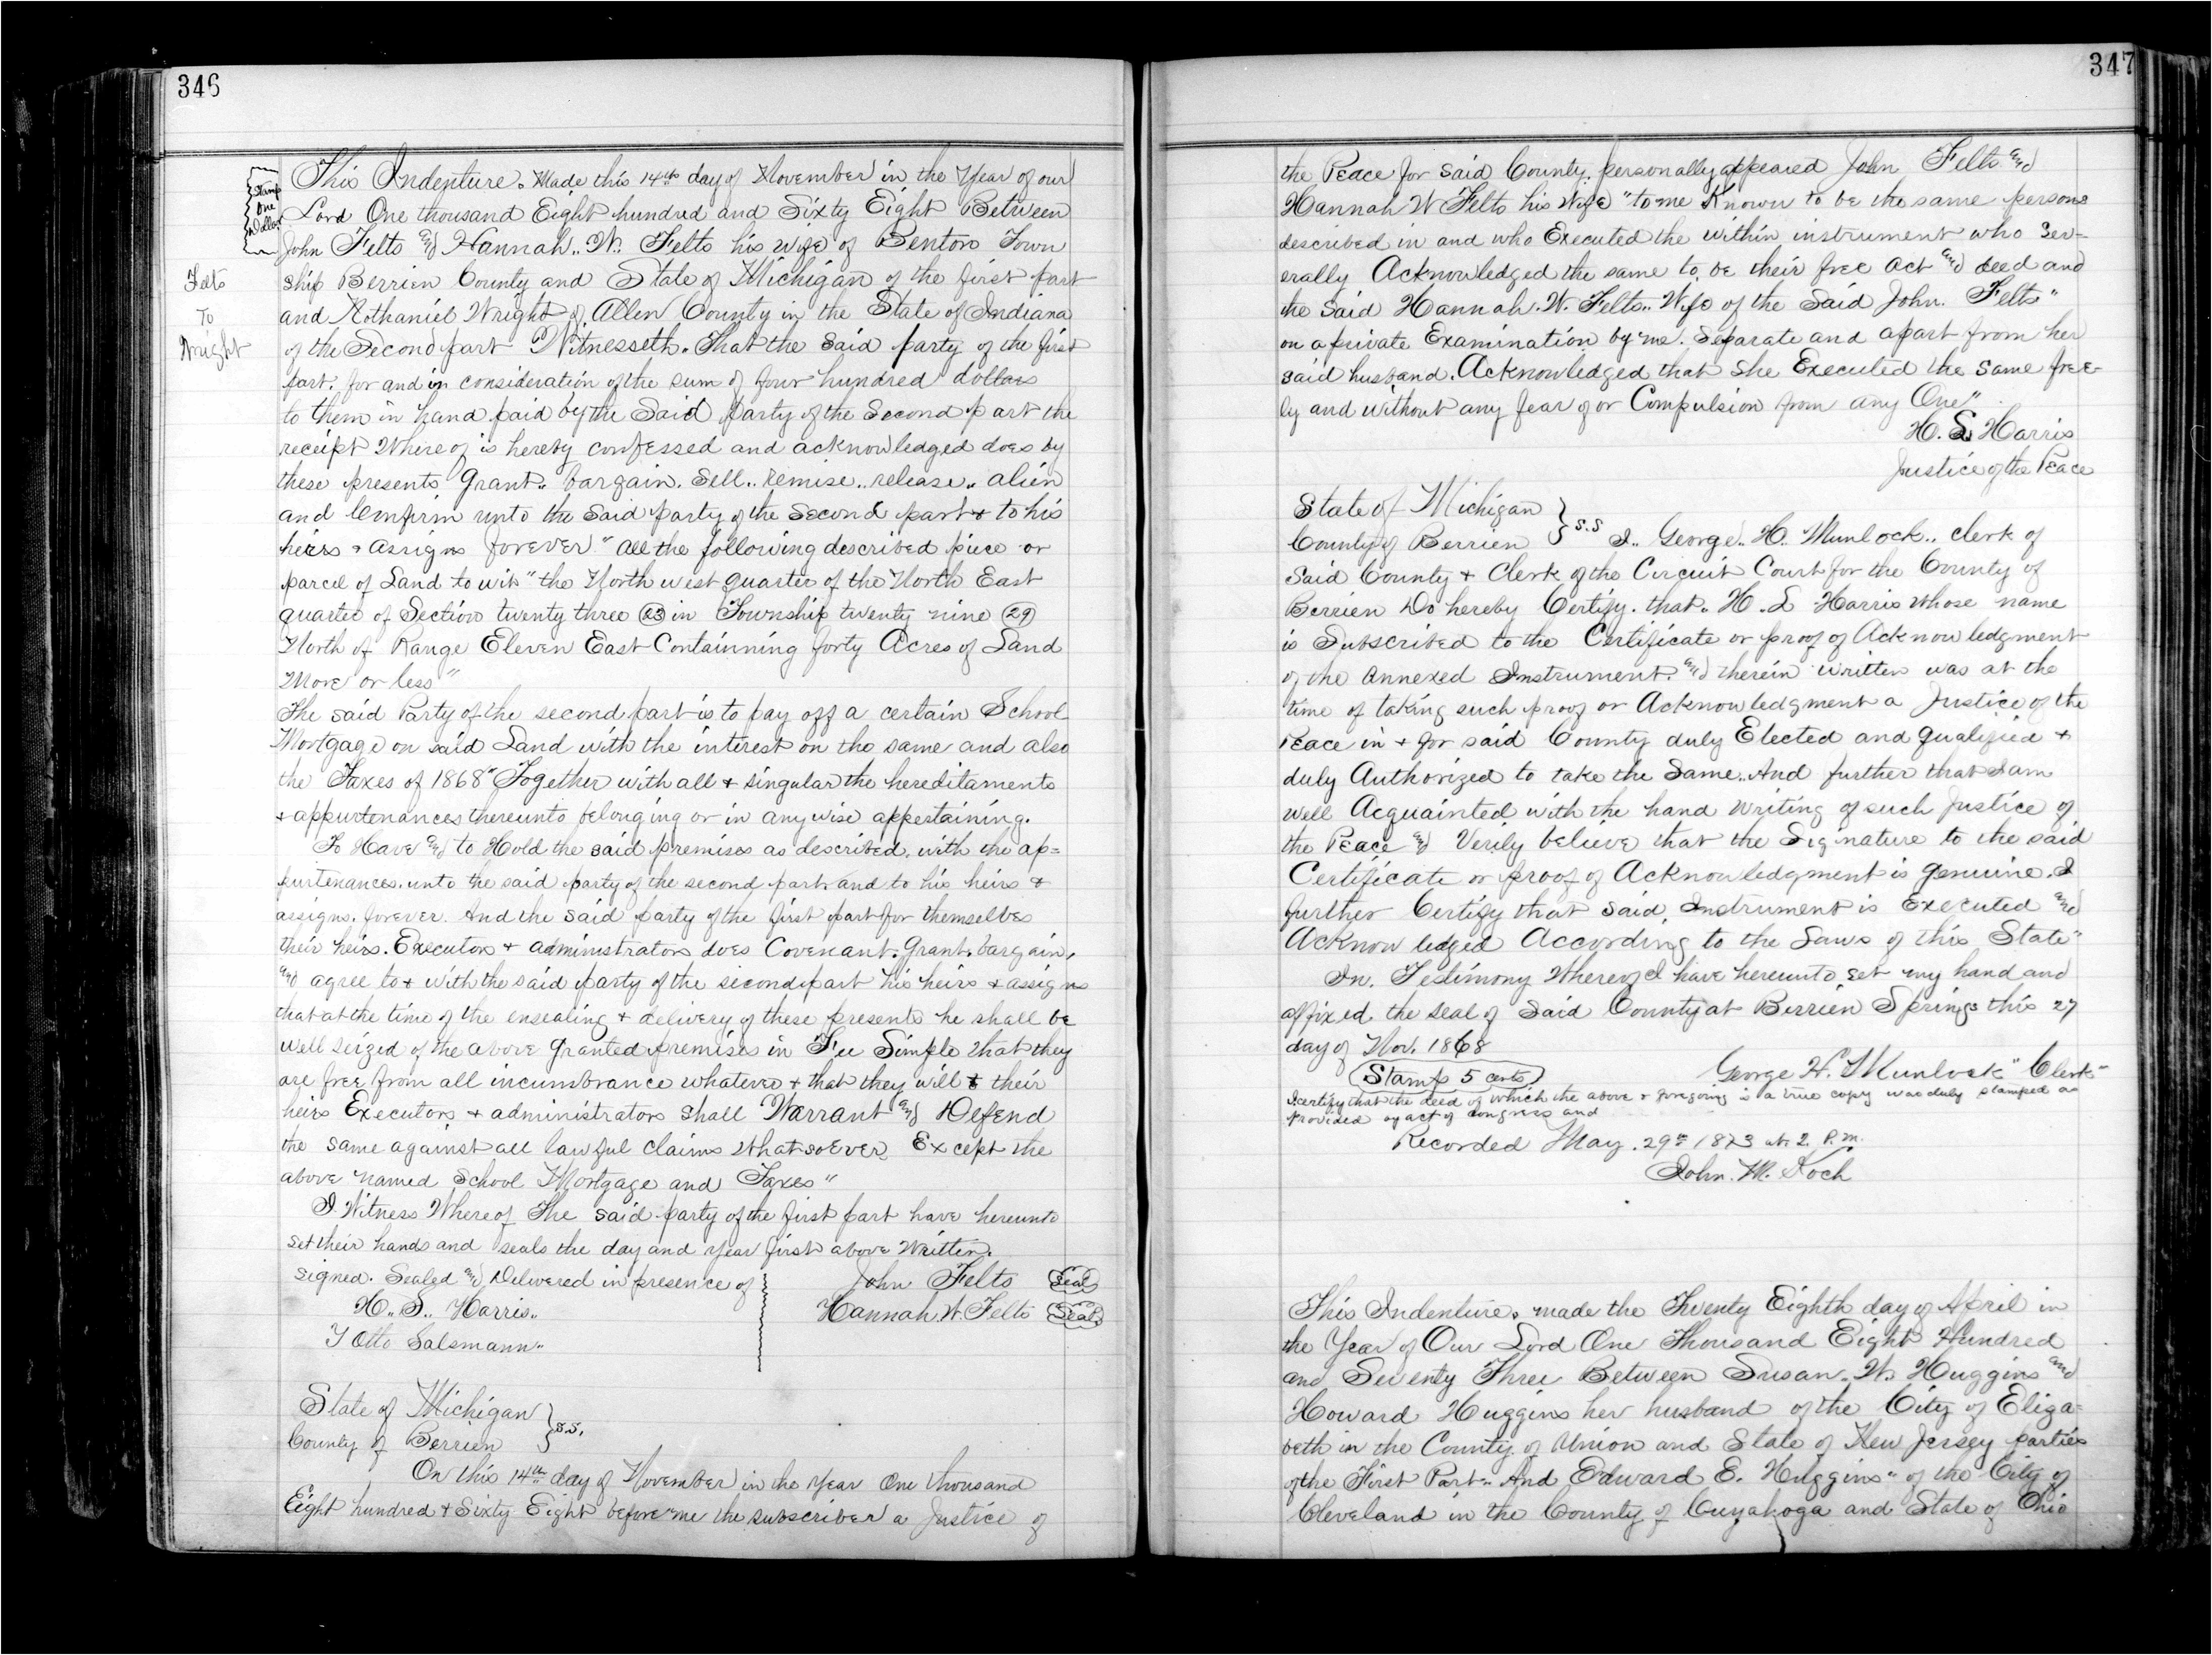 346
Stamp
One
Dollar
Felts
To
Wright
This Indenture. Made this 14th day of November in the Year of our
Lord One thousand Eight hundred and Sixty Eight Between
John Felts and Hannah.. W. Felts his wife of Benton Town
ship Berrien County and State of Michigan of the first part
and Nathaniel Wright of Allen County in the State of Indiana
of the Second part Witnesseth. That the said party of the first
part. for and in consideration of the sum of four hundred dollars
to them in hand paid by the Said party of the Second part the
receipt Where of is hereby confessed and acknowledged does by
these presents Grant.. bargain. Sell.. Remise.. release.. alien
and Confirm unto the Said party of the Second part & to his
heirs & assigns forever" all the following described piece or
parcel of Land to wit" the North west quarter of the North East
quarter of Section twenty three (23) in Township twenty nine (29)
North of Range Eleven East Containning forty Acres of Land
More or less"
The said Party of the second part is to pay off a certain School
Mortgage on said Land with the interest on the same and also
the Taxes of 1868" Together with all & singular the hereditaments
& appurtenances thereunto belonging or in any wise appertaining.
To Have and to Hold the said premises as described. with the ap=
purtenances. unto the said party of the second part and to his heirs &
assigns. forever. And the said party of the first part for themselves
their heirs. Executors & administrators does Covenant. Grant. bargain,
and agree to & with the said party of the second part his heirs & assigns
that at the time of the ensealing & delivery of these presents he shall be
well seized of the above granted premises in Fee Simple that they
are free from all incumbrance whatever & that they will & their
heirs Executors & administrators shall Warrant and Defend
the same against all lawful claims whatsoEver Except the
above named School Mortgage and Taxes"
I Witness Whereof The said party of the first part have hereunto
set their hands and seals the day and year first above Written.
signed. Sealed and Delivered in presence of
H.. S.. Harris..
Otto Salsmann..
John Felts Seal
Hannah. W. Felts Seal
State of Michigan
County of Berrien } s.s.
On this 14th day of November in the Year One thousand
Eight hundred & Sixty Eight before me the subscriber a Justice of
347
the Peace for said County. personally appeared John Felts and
Hannah W Felts his Wife" to me Known to be the same persons
described in and who Executed the within instrument who Sev-
erally Acknowledged the same to be their free act and deed and
the Said Hannah. W. Felts.. Wife of the Said John. Felts"
on a private Examination by me. Separate and apart from her
said husband. Acknowledged that She Executed the Same free-
ly and without any fear of or Compulsion from any One"
H. S. Harris
Justice of the Peace
State of Michigan
County of Berrien } s.s I.. George.. H. Munlock.. Clerk of
Said County & Clerk of the Circuit Court for the County of
Berrien Do hereby Certify. that. H. S Harris whose name
is Subscribed to the Certificate or proof of Acknowledgment
of the annexed Instrument. and therein written was at the
time of taking such proof or Acknowledgment a Justice of the
Peace in & for said County duly Elected and qualified &
duly Authorized to take the Same. And further that I am
well Acquainted with the hand writing of such Justice of
the Peace and Verily believe that the Signature to the said
Certificate or proof of Acknowledgment is genuine. I
further Certify that said Instrument is Executed and
Acknowledged According to the Laws of this State"
In. Testimony Whereof I have hereunto set my hand and
affixed the seal of Said County at Berrien Springs this 27
day of Nov. 1868
Stamp 5 cents
George H. Munlock" Clerk"
I certify that the deed of which the above & foregoing is a true copy was duly stamped as
provided by act of Congress and
Recorded May. 29th 1873 at 2. P.M.
John. M. Koch
This Indenture. made the Twenty Eighth day of April in
the Year of Our Lord One Thousand Eight Hundred
and Seventy Three Between Susan. W. Huggins and
Howard Huggins her husband of the City of Eliza-
beth in the County of Union and State of New Jersey parties
of the First Part.. And Edward E. Huggins" of the City of
Cleveland in the County of Cuyahoga and State of Ohio